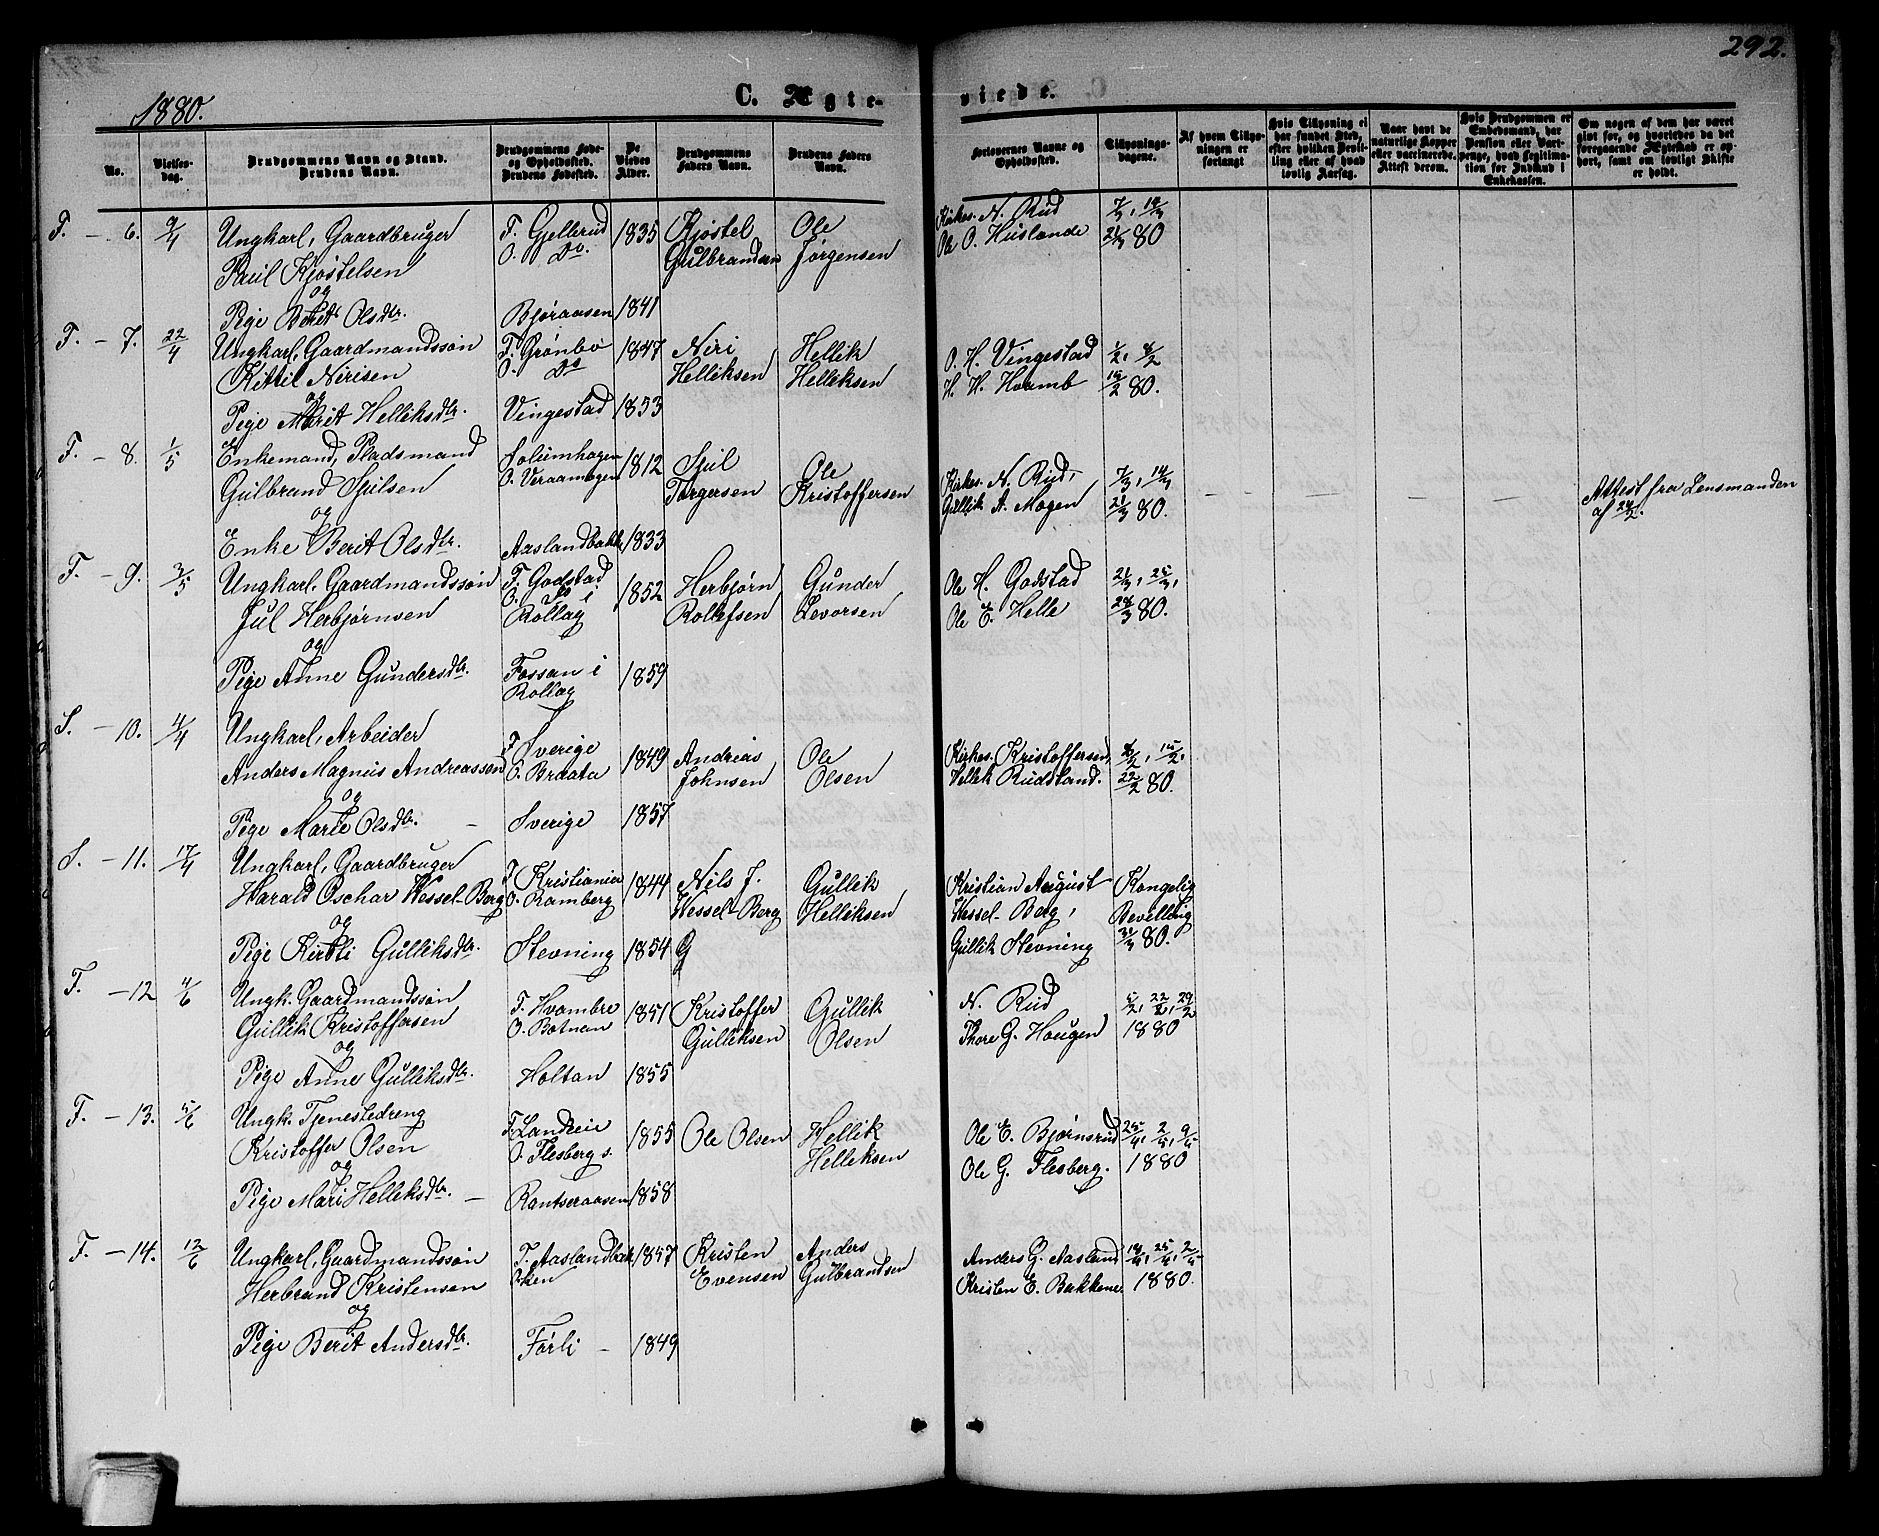 292.
1880.
C. Ægte-
viede.
No.
Vielses-
dag.
Brudgommens Navn og Stand.
Brudens Navn.
Brudgommens Føde-
og Opholdssted.
Brudens Fødested.
De
Viedes
Alder.
Brudgommens
Faders Navn.
Brudens Faders
Navn.
Forlovernes Navne og
Opholdssted.
Tillysnings-
dagene.
Af hvem Tillys-
ningen er
forlangt
Hvis Tillysning ei
har fundet Sted,
efter hvilken Bevil-
ling eller af hvad
lovlig Aarsag.
Naar havt de
naturlige Kopper
eller vaccinerede.
Attest derom.
Hvis Brudgommen er
Embedsmand, har
Pension eller Vart-
penge, hvad Legitima-
tion for Indskud i
Enkekassen.
Om nogen af dem har været
gift før, og hvorledes da det
foregaaende Ægteskab er op-
hørt, samt om lovligt Skifte
er holdt.
F. - 6. 9/4 Ungkarl, Gaardbruger F. Gjellerud 1835 Kjøstel Ole Kirkes. N. Rud 7/3, 14/3
Paul Kjøstelsen O. Do. Gulbrandsen Jørgensen Ole O. Huslende 21/3 80
og
Pige Berit Olsdtr. Bjøraasen 1841
F. - 7. 22/4 Ungkarl, Gaardmandssøn F. Grønbo 1847 Niri Hellik O. H. Vingestad 1/2, 8/2
Kittil Nirisen O. Do Helliksen Helliksen H. H. Hvamb 15/2 80.
og
Pige Marit Helliksdtr. Vingestad 1853
F. - 8. 1/5 Enkemand, Pladsmand Solumhagen 1812 Sjul Ole Kirkes. N. Rud, 7/3, 14/3
Gulbrand Sjulsen O. Veraamogen Torgersen Kristoffersen Gullik A. Mogen 21/3 80. Attest fra Lensmanden
og af
Enke Berit Olsdtr. Aaslandbakk. 1833
F. - 9. 3/5 Ungkarl, Gaardmandssøn F. Godstad 1852 Herbjørn Gunder Ole H. Godstad 21/3, 25/3,
Jul Herbjørnsen O. Do i Rollag Rollefsen Levorsen Ole E. Helle 28/3 80.
og
Pige Anne Gundersdtr. Fossan i Rollag 1859
S. - 10. 4/4 Ungkarl, Arbeider F. Sverige 1849 Andreas Ole Kirkes. Kristoffersen, 8/2, 15/2,
Anders Magnus Andreassen O. Braata Johnsen Olsen Hellik Rudsland. 22/2 80.
og
Pige Marie Olsdtr. - Sverige 1857
S. - 11. 17/4 Ungkarl, Gaardbruger F. Kristiania 1844 Nils J. Gullik Kristian August Kongelig
Harald Oschar Wessel-Berg O. Ramberg Wessel-Berg Helliksen Wessel-Berg, Bevilling
og
Pige Kirsti Gulliksdtr. Stevning 1854 G Gullik Stevning 31/3 80.
F. - 12 4/6 Ungk. Gaardmandssøn F. Hvambre 1851 Kristoffer Gullik N. Rud 22/2, 29/2
Gullik Kristoffersen O. Botnan Gulliksen Olsen Thore G. Haugen 1880
og
Pige Anne Gulliksdtr. Holtan 1855
F. - 13. 5/6 Ungk. Tjenestedreng F. Landreie 1855 Ole Olsen Hellik Ole E. Bjørnsrud 25/4, 2/5, 9/5
Kristoffer Olsen O. Flesberg s. Helleksen Ole G. Flesberg. 1880
og
Pige Mari Helleksdtr. - Rantseraasen 1858
F. - 14. 12/6 Ungkarl, Gaardmandssøn F. Aaslandbak- 1857 Kristen Anders Anders G. Aasland 18/4, 25/4, 2/5
Herbrand Kristensen O. ken Evensen Gulbrandsen Kristen E. Bakkene 1880.
og
Pige Berit Andersdtr. Førli - 1849